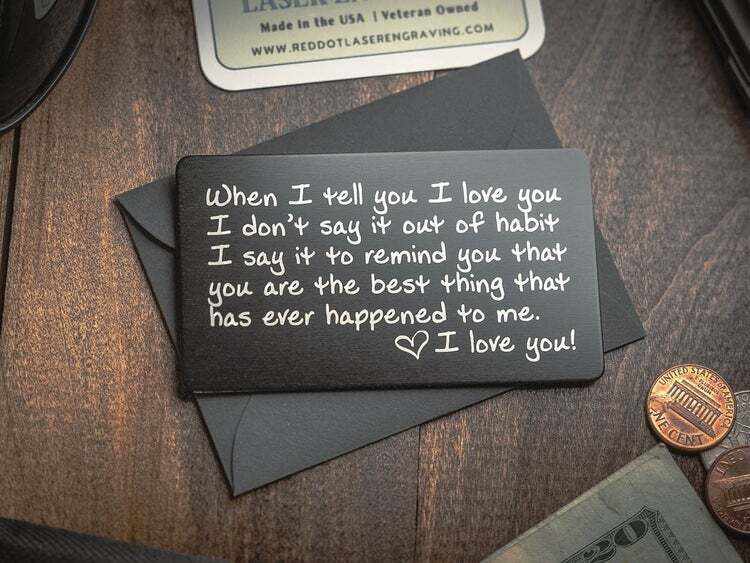 LASER
Made in the USA | Veteran Owned
WWW.REDDOTLASERENGRAVING.COM
When I tell you I love you
I don't say it out of habit
I say it to remind you that
you are the best thing that
has ever happened to me.
♡ I love you!
UNITED STATES OF AMERICA
ONE CENT
20